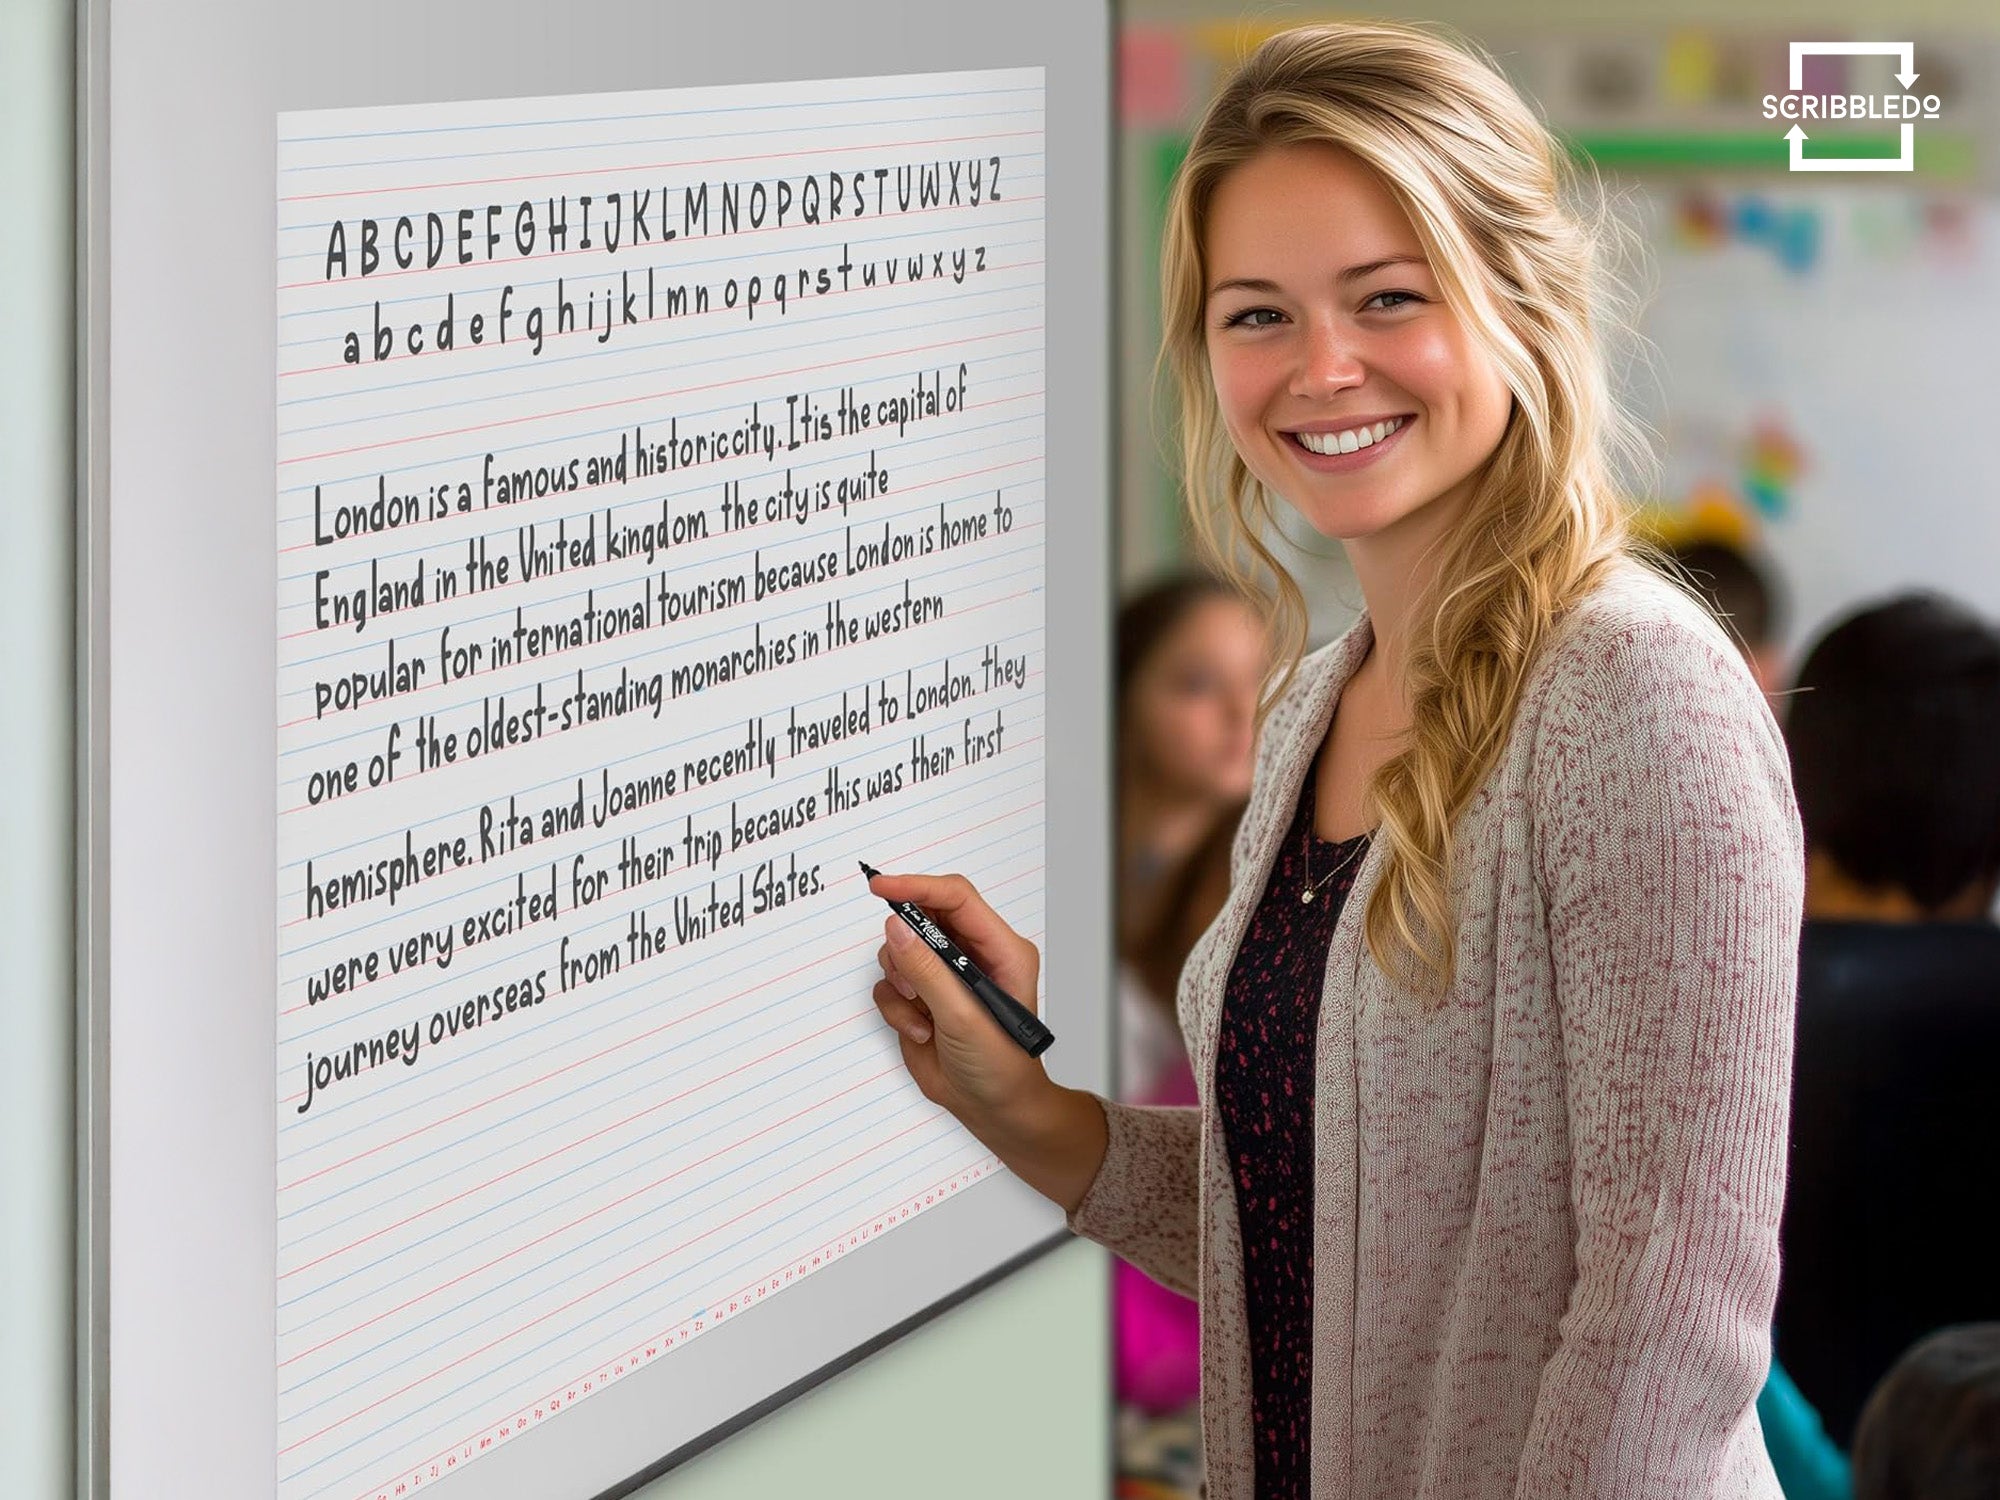 SCRIBBLEDO
ABCDEFGHIJKLMNOPQRSTUWXYZ
abcdefghijklmnopqrstuvwxyz
London is a famous and historic city. It is the capital of
England in the United kingdom. the city is quite
popular for international tourism because London is home to
one of the oldest-standing monarchies in the western
hemisphere. Rita and Joanne recently traveled to London. they
were very excited for their trip because this was their first
journey overseas from the United States.
Hh Ii Jj Kk Ll Mm Nn Oo Pp Qq Rr Ss Tt Uu Vv Ww Xx Yy Zz Aa Bb Cc Dd Ee Ff Gg Hh Ii Jj Kk Ll Mm Nn Oo Pp Qq Rr Ss Tt Uu